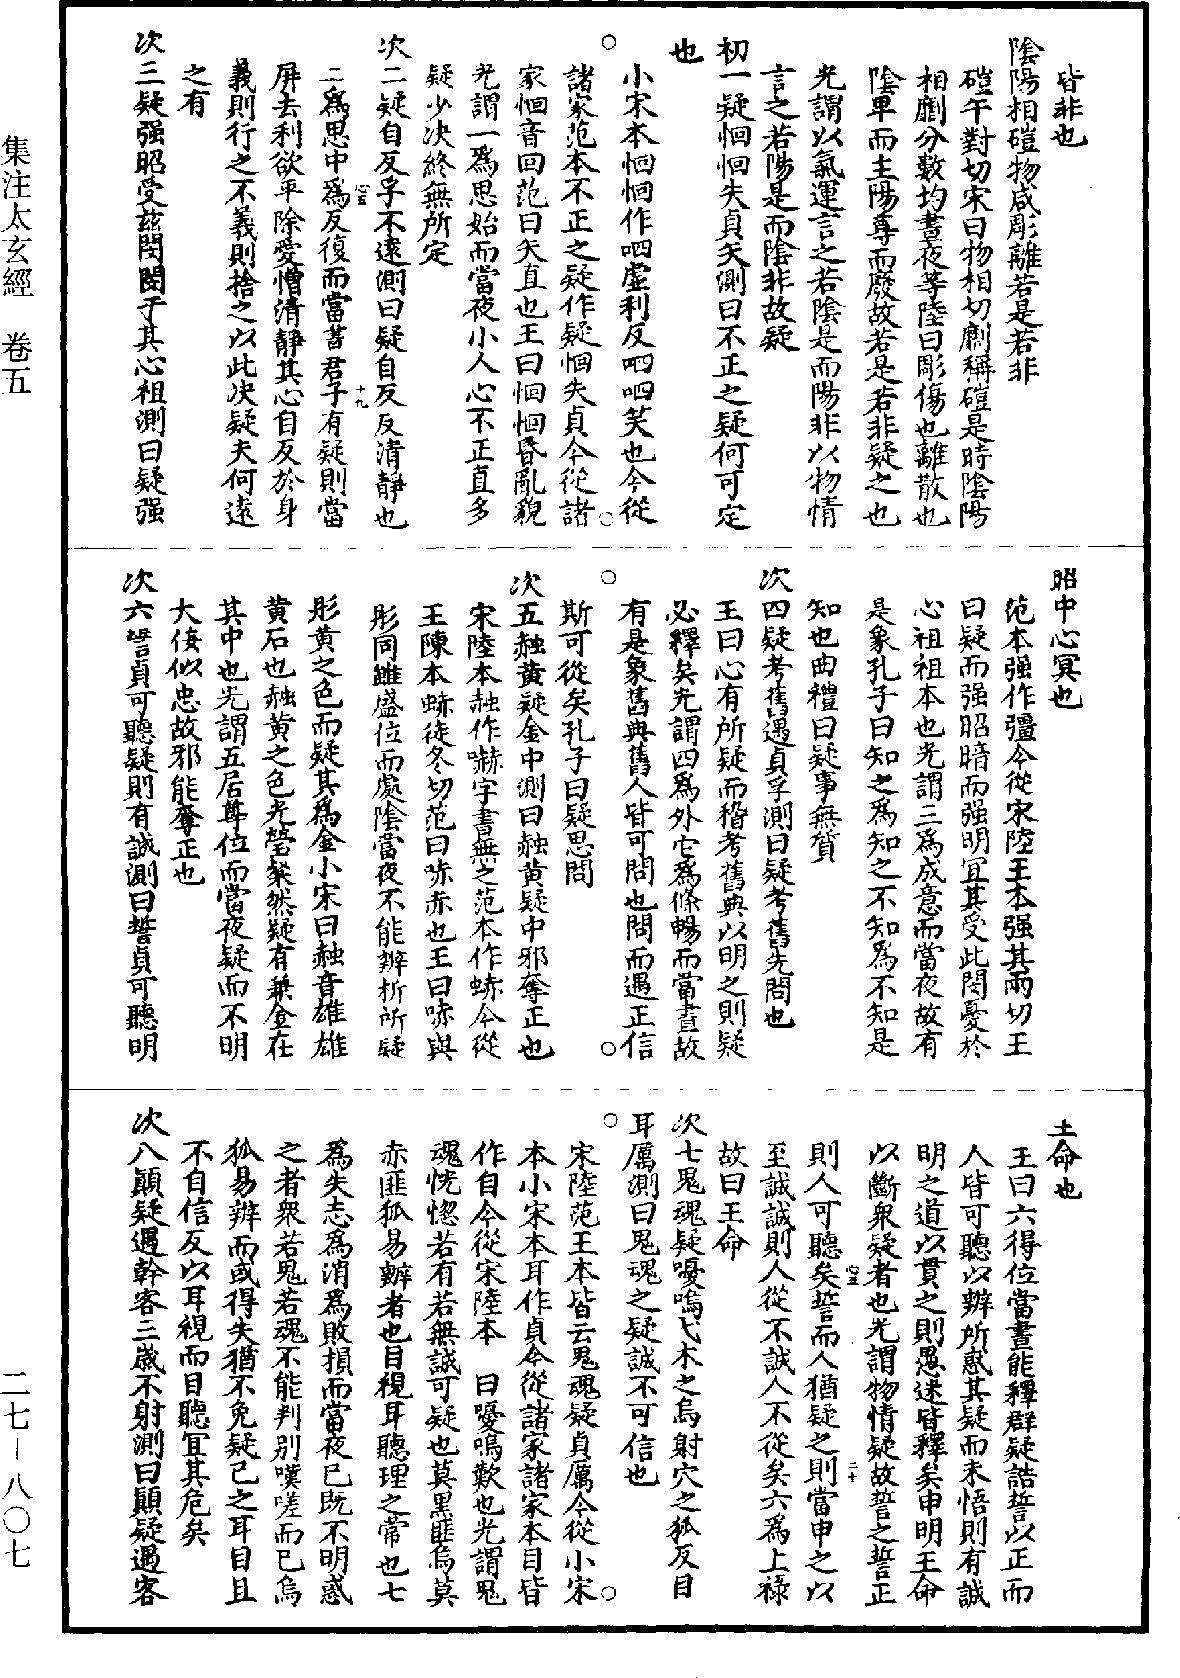 皆非也
陰陽相磑物咸彫離若是若非
磑午對切宋曰物相切劘稱磑是時陰陽
相劘分數均晝夜等陸曰彫傷也離散也
陰卑而主陽尊而廢故若是若非疑之也
光謂以氣運言之若陰是而陽非以物情
言之若陽是而陰非故疑
初一疑恛恛失貞矢測曰不正之疑何可定
也
小宋本恛恛作呬虛利反呬呬笑也今從
諸家范本不正之疑作疑恛失貞今從諸
家恛音回范曰矢直也王曰恛恛昏亂貌
光謂一爲思始而當夜小人心不正直多
疑少决終無所定
次二疑自反孚不遠測曰疑自反反清靜也
二爲思中爲反復而當晝君子有疑則當
屏去利欲平除愛憎清靜其心自反於身
義則行之不義則捨之以此决疑夫何遠
之有
次三疑强昭受玆閔閔于其心祖測曰疑强
昭中心冥也
范本强作彊今從宋陸王本强其兩切王
曰疑而强昭暗而强明宜其受此閔憂於
心祖祖本也光謂三爲成意而當夜故有
是象孔子曰知之爲知之不知爲不知是
知也曲禮曰疑事無質
次四疑考舊遇貞孚測曰疑考舊先問也
王曰心有所疑而稽考舊典以明之則疑
必釋矣光謂四爲外它爲條暢而當晝故
有是象舊典舊人皆可問也問而遇正信
斯可從矣孔子曰疑思問
次五赨黃疑金中測曰赨黃疑中邪奪正也
宋陸本赨作嚇字書無之范本作蛛今從
王陳本赨徒冬切范曰哧赤也王曰哧與
彤同雖盛位而處陰當夜不能辨析所疑
彤黃之色而疑其爲金小宋曰赨音雄雄
黃石也赨黃之色光瑩粲然疑有兼金在
其中也光謂五居尊位而當夜疑而不明
大佞似忠故邪能奪正也
次六誓貞可聽疑則有誠測曰誓貞可聽明
王命也
王曰六得位當晝能釋群疑誥誓以正而
人皆可聽以辨所惑其疑而未悟則有誠
明之道以貫之則愚迷皆釋矣申明王命
以斷衆疑者也光謂物情疑故誓之誓正
則人可聽矣誓而人猶疑之則當申之以
至誠誠則人從不誠人不從矣六爲上祿
故曰王命
次七鬼魂疑嚘嗚弋木之烏射穴之狐反目
耳厲測曰鬼魂之疑誠不可信也
宋陸范王本皆云鬼魂疑貞厲今從小宋
本小宋本耳作貞今從諸家諸家本目皆
作自今從宋陸本　曰嚘嗚歎也光謂鬼
魂恍惚若有若無誠可疑也莫黑匪烏莫
赤匪狐易辦者也目視耳聽理之常也七
爲失志爲消爲敗損而當夜已既不明惑
之者衆若鬼若魂不能判别嘆嗟而已烏
狐易辨而或得失猶不免疑已之耳目且
不自信反以耳視而目聽宜其危矣
次八顚疑遇幹客三歲不射測曰顚疑遇客
心五
十九
心五
二十
集注太玄經　卷五
二七－八〇七